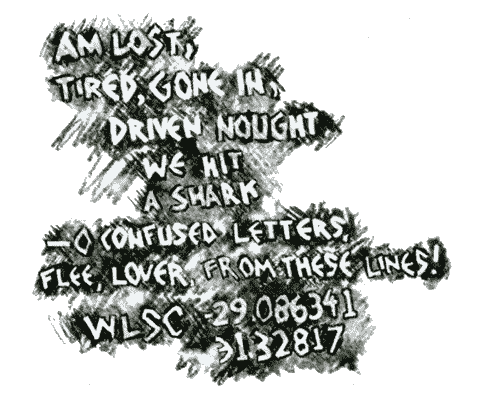 AM LOST,
TIRED, GONE IN,
DRIVEN NOUGHT
WE HIT
A SHARK
—O CONFUSED LETTERS,
FLEE, LOVER, FROM THESE LINES!
WLSC -29.086341
31.32817